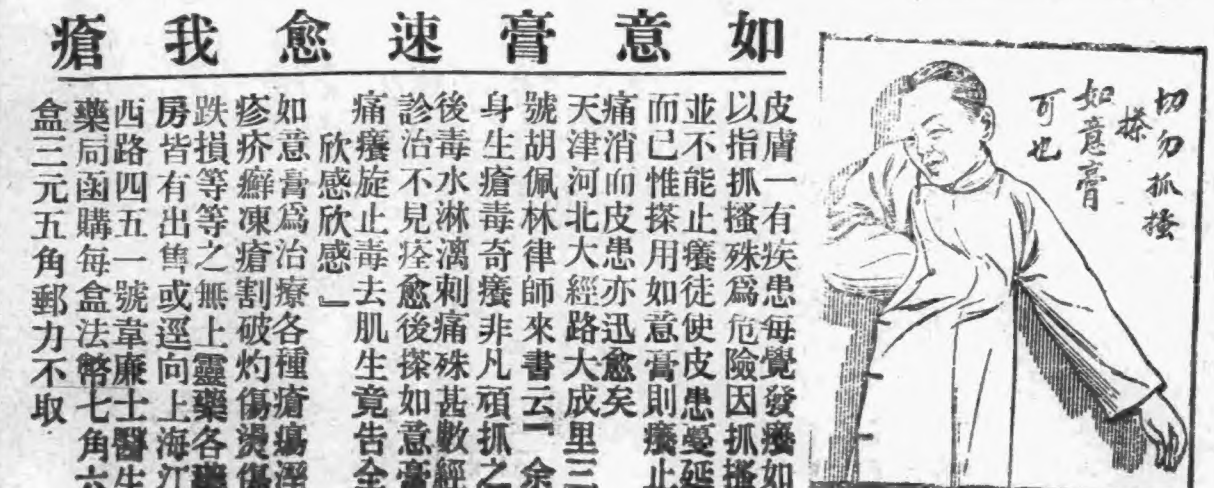 如意膏速愈我瘡
切勿抓搔
搽
如意膏
可也
皮膚一有疾患每覺發癢如
以指抓搔殊爲危險因抓搔
並不能止癢徒使皮患蔓延
而已惟搽用如意膏則癢止
痛消而皮患亦迅愈矣
天津河北大經路大成里三
號胡佩林律師來書云『余
身生瘡毒奇癢非凡頑抓之
後毒水淋漓刺痛殊甚數經
診治不見痊愈後搽如意膏
痛癢旋止毒去肌生竟告全
欣感欣感』
如意膏爲治療各種瘡瘍溼
疹疥癬凍瘡割破灼傷燙傷
跌損等等之無上靈藥各藥
房皆有出售或逕向上海江
西路四五一號韋廉士醫生
藥局函購每盒法幣七角六
盒三元五角郵力不取